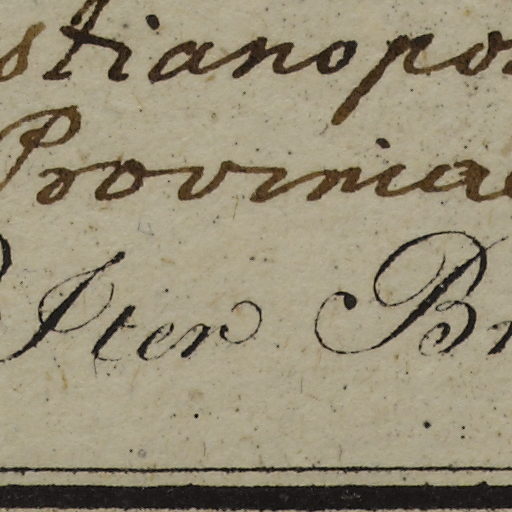 stianopo
Provinciae
Iter Br